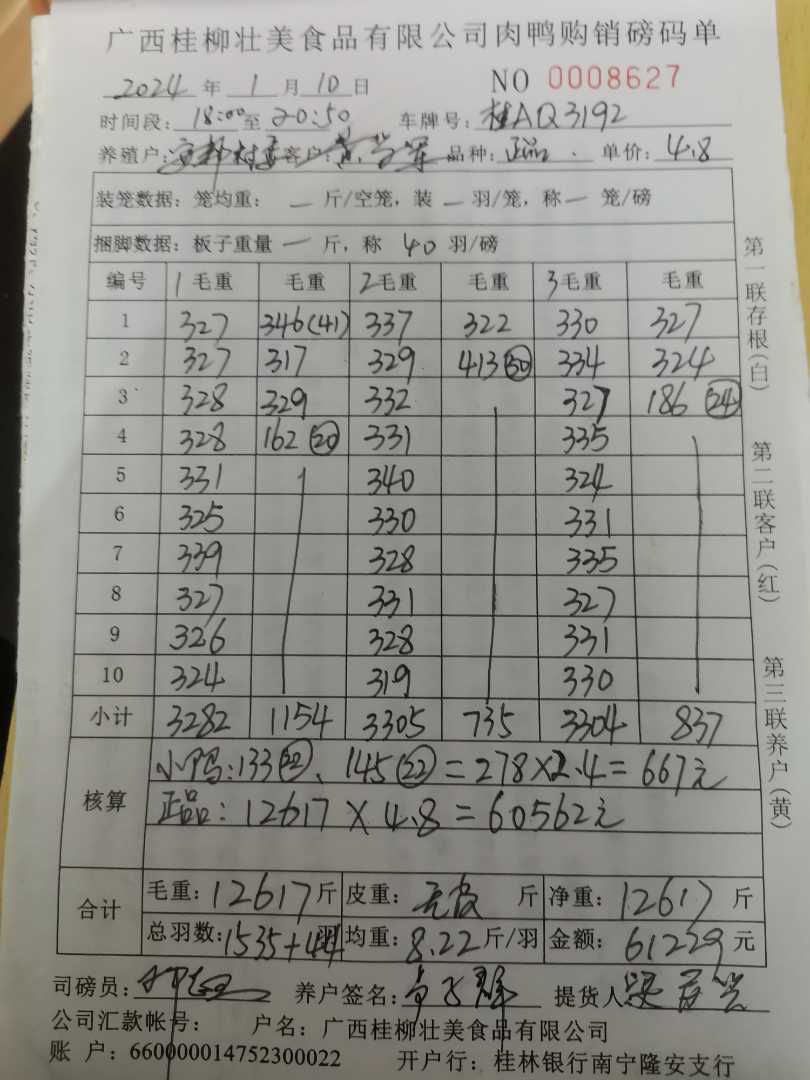 广西桂柳壮美食品有限公司肉鸭购销磅码单
2024 年 1 月 10 日 NO 0008627
时间段: 18:00 至 20:50 车牌号: 桂AQ3192
养殖户: 客户: 品种: 正品 . 单价: 4.8
装笼数据: 笼均重: — 斤/空笼, 装 — 羽/笼, 称 — 笼/磅
捆脚数据: 板子重量 — 斤, 称 40 羽/磅
编号 1 毛重 毛重 2 毛重 毛重 3 毛重 毛重
1 327 346(41) 337 322 330 327
2 327 317 329 413(50) 334 324
3 328 329 332 327 186 (24)
4 328 162 (20) 331 335
5 331 340 324
6 325 330 331
7 339 328 335
8 327 331 327
9 326 328 331
10 324 319 330
小计 3282 1154 3305 735 3304 837
核算 小鸭:133(22)、145(22)=278×2.4=667元
正品:12617×4.8=60562元
合计 毛重: 12617 斤 皮重: 无皮 斤 净重: 12617 斤
总羽数: 1535+44 羽 均重: 8.22 斤/羽 金额: 61229 元
司磅员: 养户签名: 提货人
公司汇款帐号: 户名: 广西桂柳壮美食品有限公司
账 户: 660000014752300022 开户行: 桂林银行南宁隆安支行
第一联存根(白)
第二联客户(红)
第三联养户(黄)